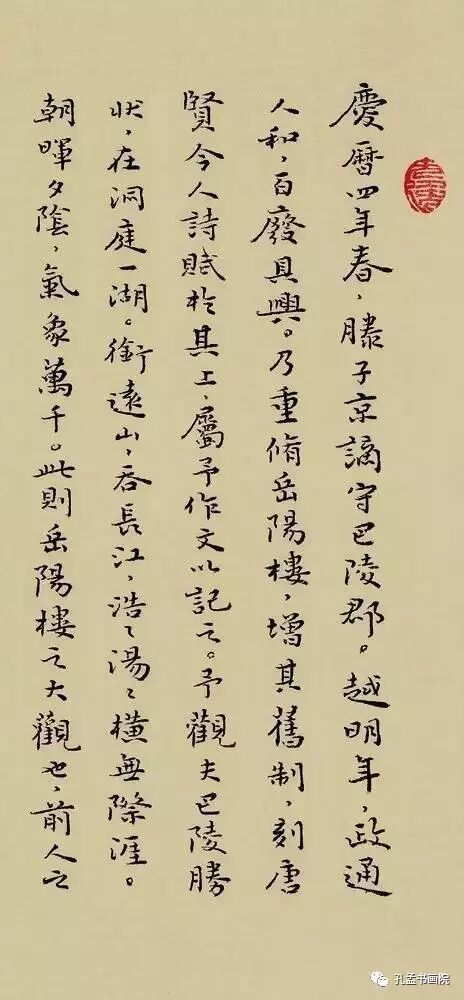 慶曆四年春，滕子京謫守巴陵郡。越明年，政通
人和，百廢具興。乃重脩岳陽樓，增其舊制，刻唐
賢今人詩賦於其上，屬予作文以記之。予觀夫巴陵勝
狀，在洞庭一湖。銜遠山，吞長江，浩〻湯〻，橫無際涯。
朝暉夕陰，氣象萬千。此則岳陽樓之大觀也，前人之
孔孟书画院